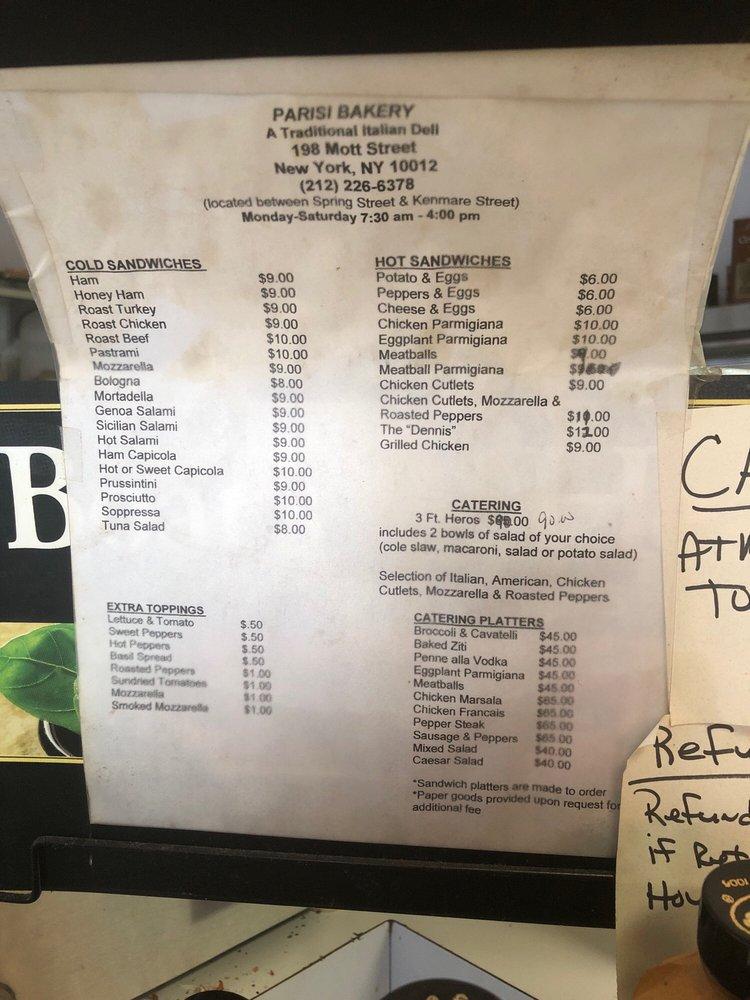 PARISI BAKERY
A Traditional Italian Deli
198 Mott Street
New York, NY 10012
(212) 226-6378
(located between Spring Street & Kenmare Street)
Monday-Saturday 7:30 am - 4:00 pm
COLD SANDWICHES
Ham $9.00
Honey Ham $9.00
Roast Turkey $9.00
Roast Chicken $9.00
Roast Beef $10.00
Pastrami $10.00
Mozzarella $9.00
Bologna $8.00
Mortadella $9.00
Genoa Salami $9.00
Sicilian Salami $9.00
Hot Salami $9.00
Ham Capicola $9.00
Hot or Sweet Capicola $10.00
Prussintini $9.00
Prosciutto $10.00
Soppressa $10.00
Tuna Salad $8.00
EXTRA TOPPINGS
Lettuce & Tomato $.50
Sweet Peppers $.50
Hot Peppers $.50
Basil Spread $.50
Roasted Peppers $1.00
Sundried Tomatoes $1.00
Mozzarella $1.00
Smoked Mozzarella $1.00
HOT SANDWICHES
Potato & Eggs $6.00
Peppers & Eggs $6.00
Cheese & Eggs $6.00
Chicken Parmigiana $10.00
Eggplant Parmigiana $10.00
Meatballs $9.00
Meatball Parmigiana
Chicken Cutlets $9.00
Chicken Cutlets, Mozzarella &
Roasted Peppers
The "Dennis"
Grilled Chicken $9.00
CATERING
3 Ft. Heros 90.00
includes 2 bowls of salad of your choice
(cole slaw, macaroni, salad or potato salad)
Selection of Italian, American, Chicken
Cutlets, Mozzarella & Roasted Peppers
CATERING PLATTERS
Broccoli & Cavatelli $45.00
Baked Ziti $45.00
Penne alla Vodka $45.00
Eggplant Parmigiana $45.00
Meatballs $45.00
Chicken Marsala $65.00
Chicken Francais $65.00
Pepper Steak $65.00
Sausage & Peppers $65.00
Mixed Salad $40.00
Caesar Salad $40.00
*Sandwich platters are made to order
*Paper goods provided upon request for
additional fee
B
CA
ATM
TO
Refu
Refund
if
Hou